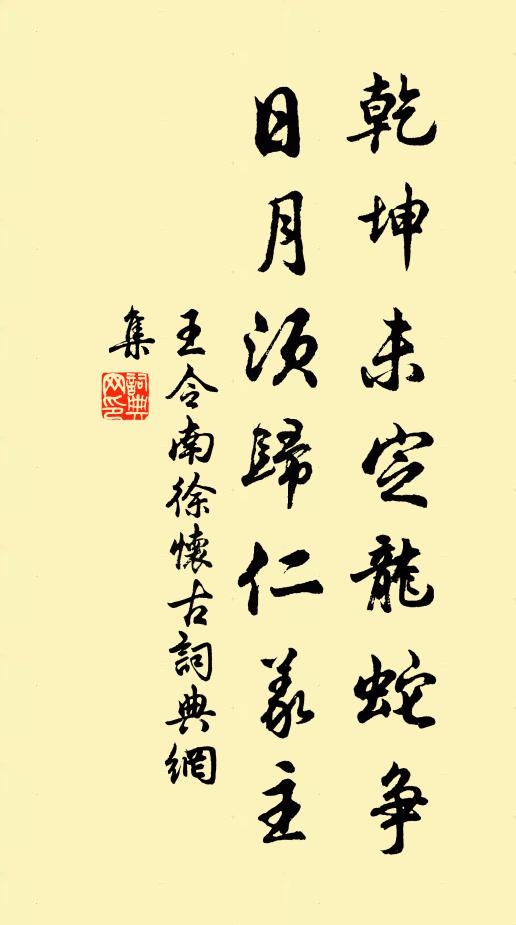 乾坤未定龍蛇争
日月須歸仁義主
王令南徐懷古詞典網
集
詞典
网印